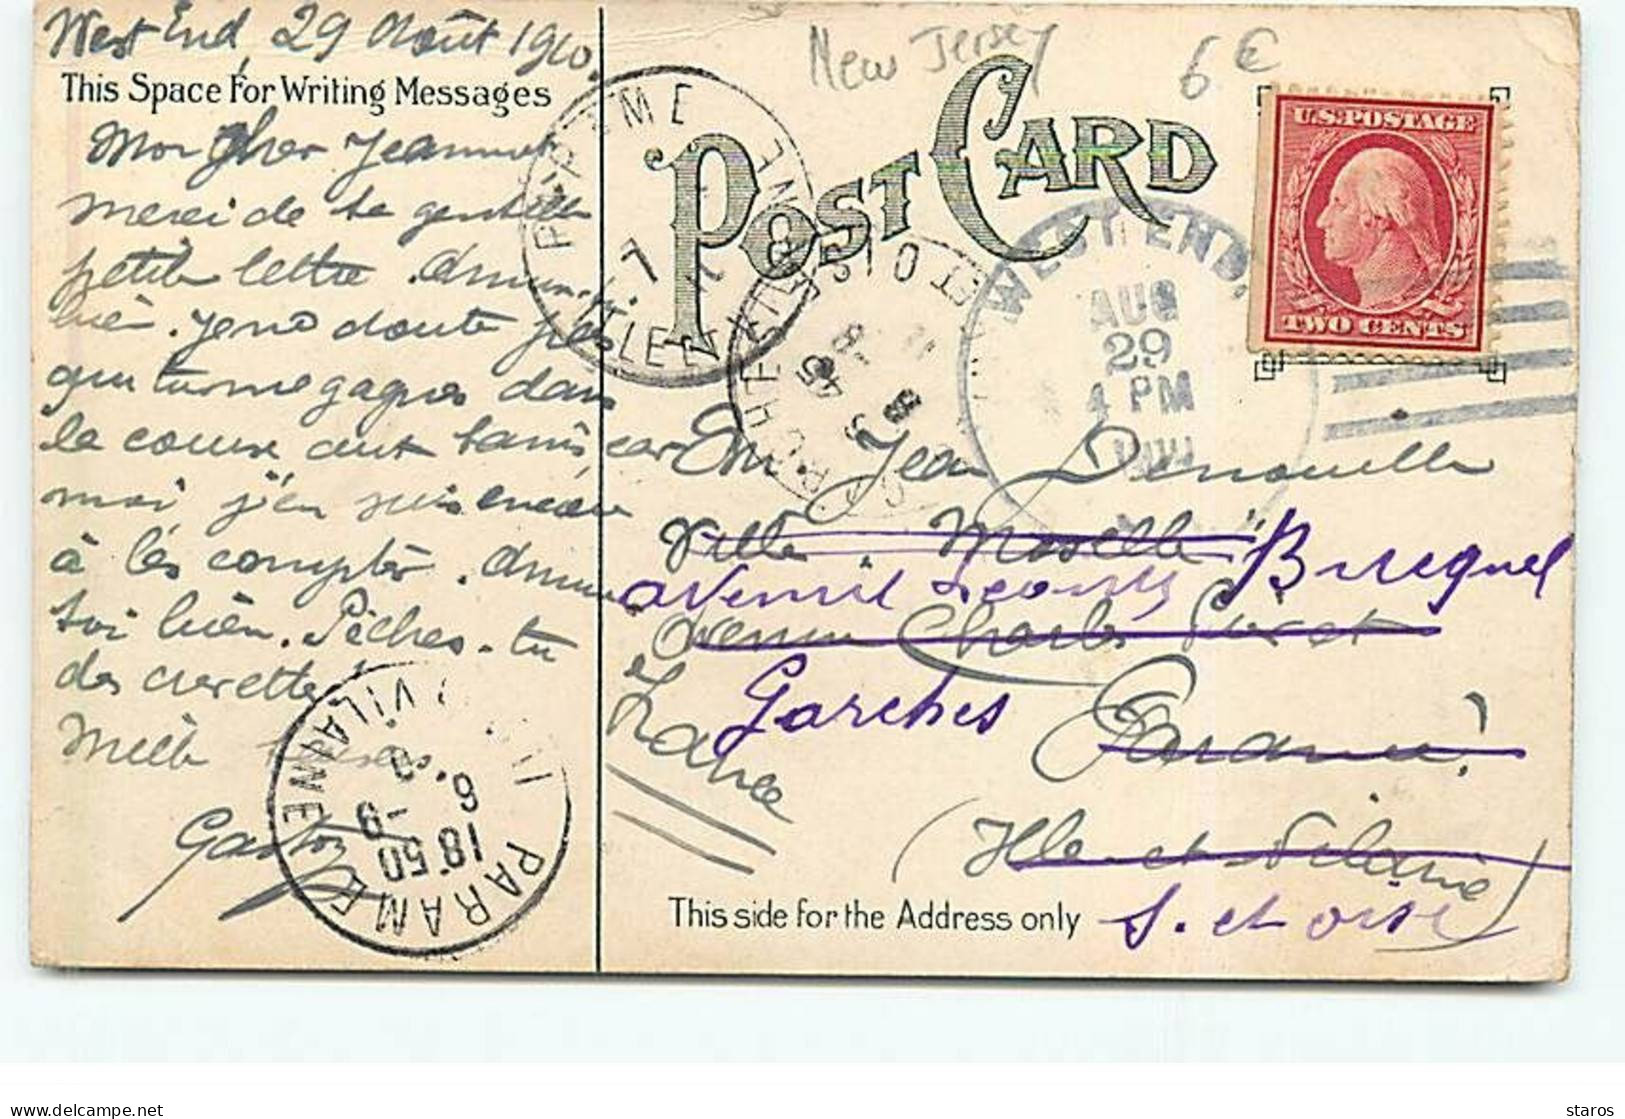 West End, 29 Août 1910.
This Space For Writing Messages
Mon cher Jeannot
merci de ta gentille
petite lettre. Amuse-
bien. Je ne doute pas
que tu me gagnes dans
la course aux tennis car
moi j'en suis encore
à les compter. Amuse
toi bien. Pêches-tu
des crevettes
Mille
Gaston
New Jersey
6€
POST CARD
U.S. POSTAGE
TWO CENTS
WEST END,
AUG
29
4 PM
PARAME
ILLE ET VILAINE
PARAME
18 50
6 -9
VILAINE
Jean
Villa "Moselle"
Bucquet
avenue
Avenue Charles
Garches
Paramé
France
(Ille-et-Vilaine)
S. et Oise
This side for the Address only
staros
delcampe.net